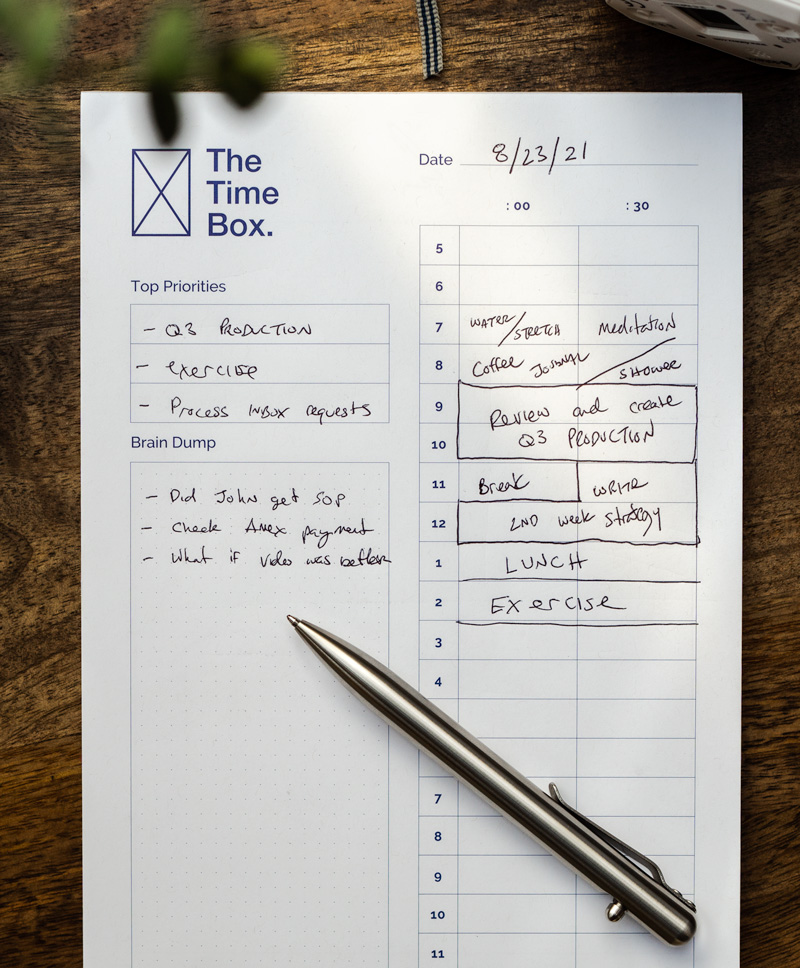 The
Time
Box.
Date 8/23/21
:00 :30
Top Priorities
- Q3 PRODUCTION
- exercise
- Process INBOX requests
Brain Dump
- Did John get SOP
- Check Amex payment
- What if video was better
5
6
7 WATER/STRETCH Meditation
8 Coffee JOURNAL / SHOWER
9 Review and create
10 Q3 PRODUCTION
11 Break WRITE
12 2ND week Strategy
1 LUNCH
2 Exercise
3
4
7
8
9
10
11